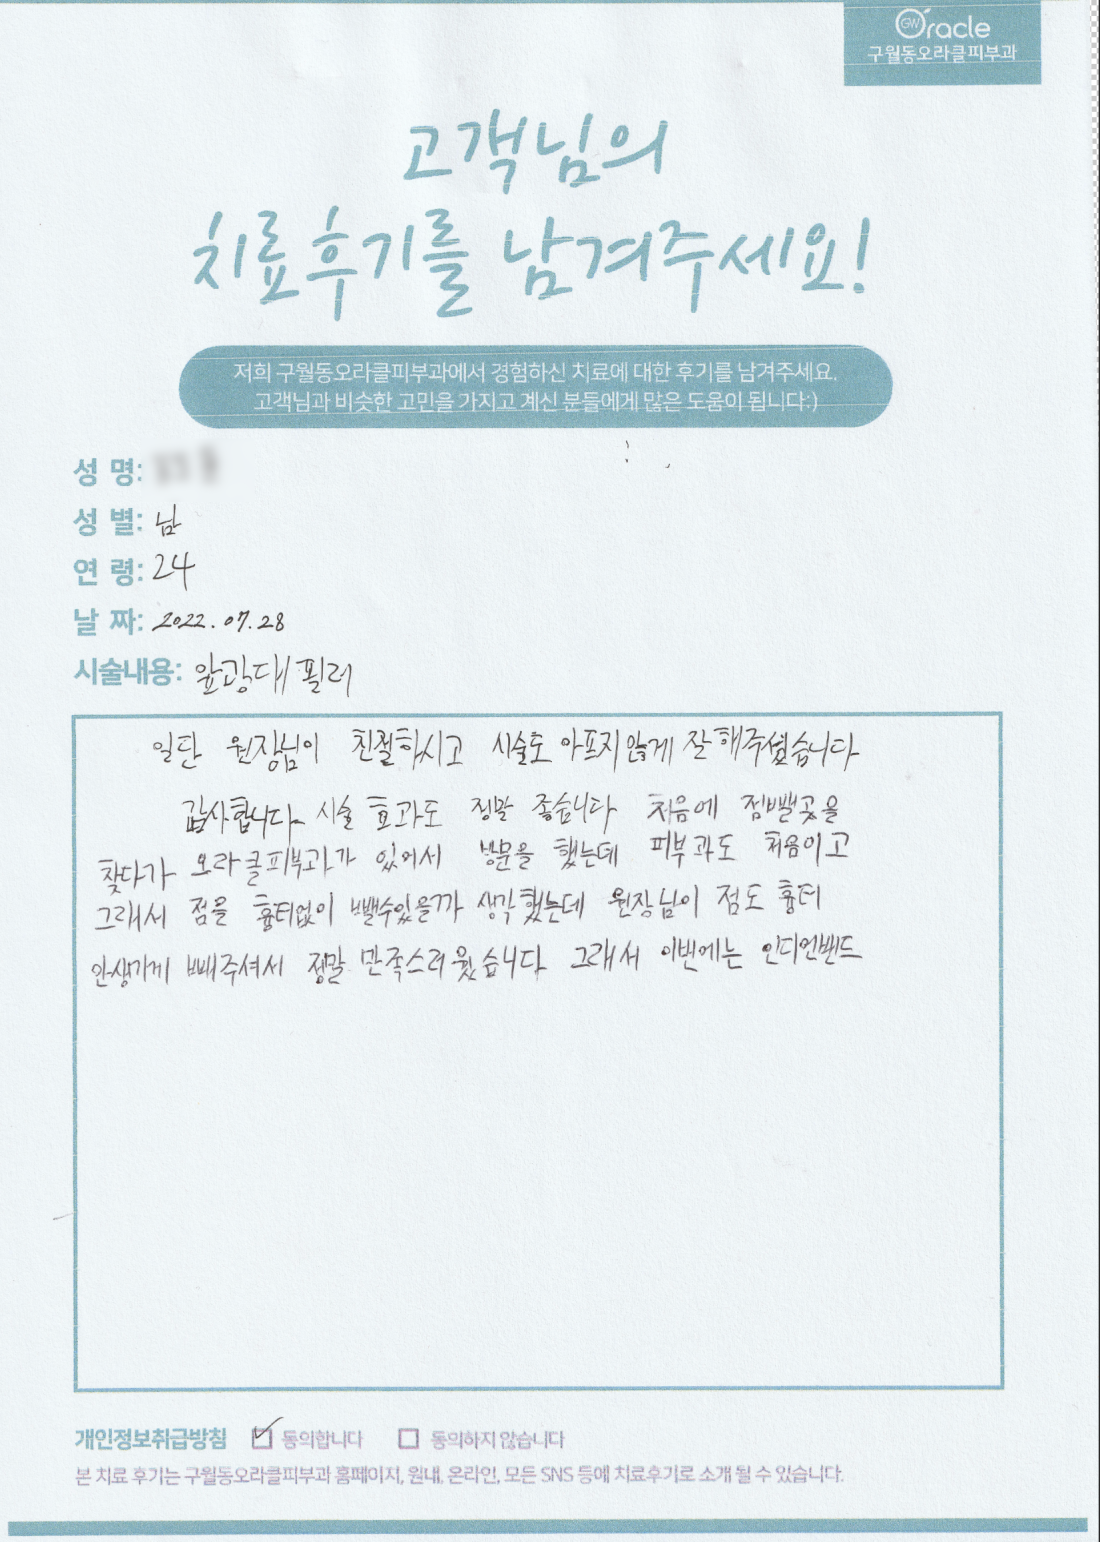 Oracle
구월동오라클피부과
고객님의
치료후기를 남겨주세요!
저희 구월동오라클피부과에서 경험하신 치료에 대한 후기를 남겨주세요.
고객님과 비슷한 고민을 가지고 계신 분들에게 많은 도움이 됩니다:)
성 명:
성 별: 남
연 령: 24
날 짜: 2022. 07. 28
시술내용: 앞광대 필러
일단 원장님이 친절하시고 시술도 아프지 않게 잘 해주셨습니다
감사합니다. 시술 효과도 정말 좋습니다 처음에 점뺄곳을
찾다가 오라클피부과가 있어서 방문을 했는데 피부과도 처음이고
그래서 점을 흉터없이 뺄수있을까 생각했는데 원장님이 점도 흉터
안생기게 빼주셔서 정말 만족스러웠습니다. 그래서 이번에는 인디언밴드
개인정보취급방침 동의합니다 동의하지 않습니다
본 치료 후기는 구월동오라클피부과 홈페이지, 원내, 온라인, 모든 SNS 등에 치료후기로 소개 될 수 있습니다.